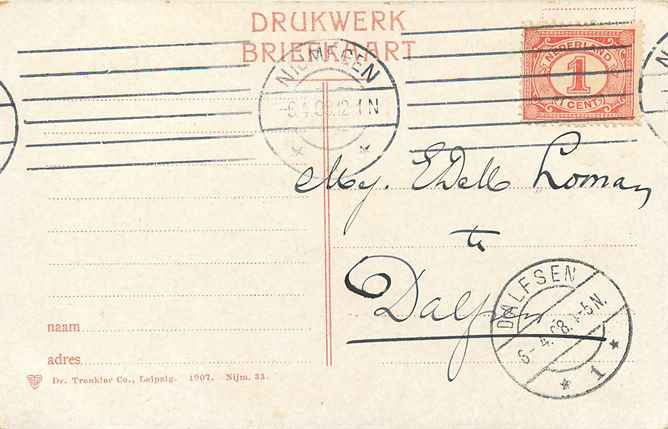 DRUKWERK
BRIEFKAART
NIJMEGEN
6.4.08.12-1N
NEDERLAND
1
1 CENT
Mej. Loman
te
Dalfsen
DALFSEN
6-4.08.4-5N.
1
naam
adres
Dr. Trenkler Co., Leipzig. 1907. Nijm. 33.